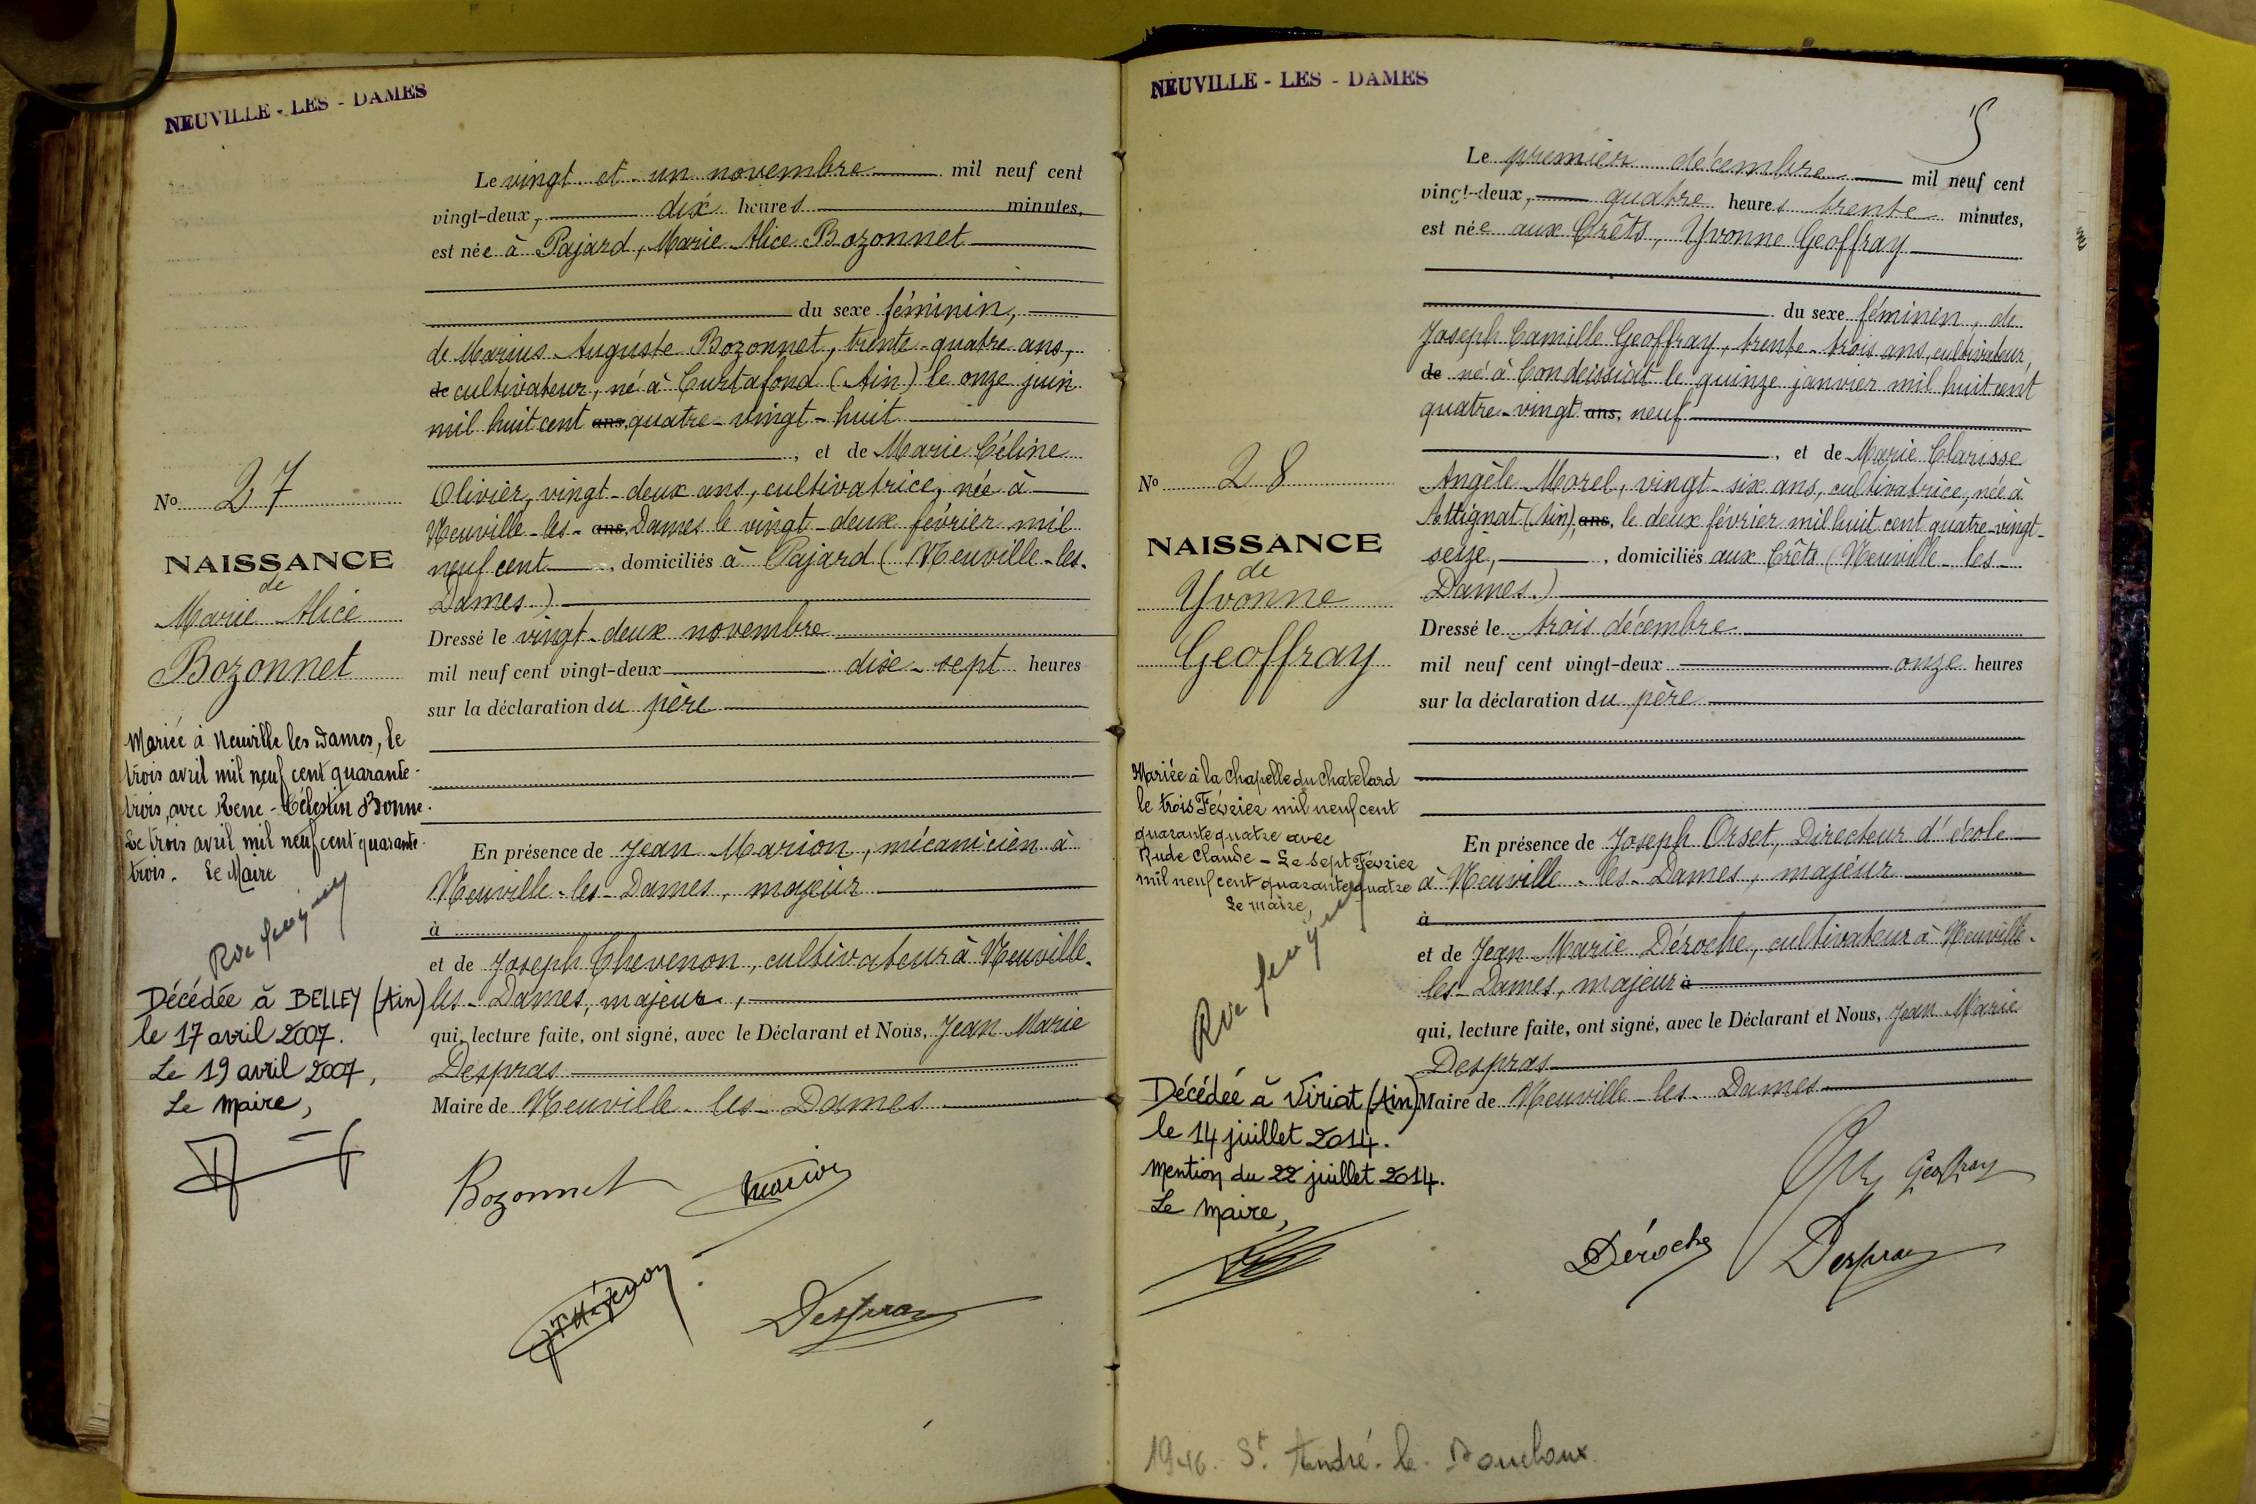 NEUVILLE - LES - DAMES
Le vingt et un novembre mil neuf cent
vingt-deux, dix heures minutes,
est née à Pajard, Marie Alice Bozonnet
du sexe féminin,
de Marius Auguste Bozonnet, trente-quatre ans,
de cultivateur, né à Curtafond (Ain) le onze juin
mil huit cent ans, quatre-vingt-huit
, et de Marie Céline
Olivier, vingt-deux ans, cultivatrice, née à
Neuville-les- ans, Dames le vingt-deux février mil
neuf cent , domiciliés à Pajard (Neuville-les-
Dames.)
Dressé le vingt-deux novembre
mil neuf cent vingt-deux dix-sept heures
sur la déclaration du père
En présence de Jean Marion, mécanicien à
Neuville-les-Dames, majeur
à
et de Joseph Chevenon, cultivateur à Neuville-
les-Dames, majeur,
qui, lecture faite, ont signé, avec le Déclarant et Nous, Jean Marie
Despras
Maire de Neuville-les-Dames
Bozonnet Marion
Despras
No 27
NAISSANCE
de
Marie Alice
Bozonnet
Mariée à Neuville les Dames, le
trois avril mil neuf cent quarante-
trois, avec René-Célestin Bonne.
Le trois avril mil neuf cent quarante-
trois. Le Maire
Décédée à BELLEY (Ain)
le 17 avril 2007.
Le 19 avril 2007,
Le Maire,
NEUVILLE - LES - DAMES
Le premier décembre mil neuf cent
vingt-deux, quatre heures trente minutes,
est née aux Crêts, Yvonne Geoffray
du sexe féminin, de
Joseph Camille Geoffray, trente-trois ans, cultivateur,
de né à Condeissiat le quinze janvier mil huit cent
quatre-vingt ans, neuf
, et de Marie Clarisse
Angèle Morel, vingt-six ans, cultivatrice, née à
Attignat (Ain), ans, le deux février mil huit cent quatre-vingt-
seize, , domiciliés aux Crêts (Neuville-les-
Dames.)
Dressé le trois décembre
mil neuf cent vingt-deux onze heures
sur la déclaration du père
En présence de Joseph Orset, Directeur d'école
à Neuville-les-Dames, majeur
à
et de Jean Marie Déroche, cultivateur à Neuville-
les-Dames, majeur à
qui, lecture faite, ont signé, avec le Déclarant et Nous, Jean Marie
Despras
Maire de Neuville-les-Dames
Geoffray
Déroche Despras
No 28
NAISSANCE
de
Yvonne
Geoffray
Mariée à la Chapelle du Chatelard
le trois Février mil neuf cent
quarante quatre avec
Rude Claude - Le sept Février
mil neuf cent quarante quatre
Le maire,
Décédée à Viriat (Ain)
le 14 juillet 2014.
Mention du 22 juillet 2014.
Le Maire,
1946. St André-le-Bouchoux